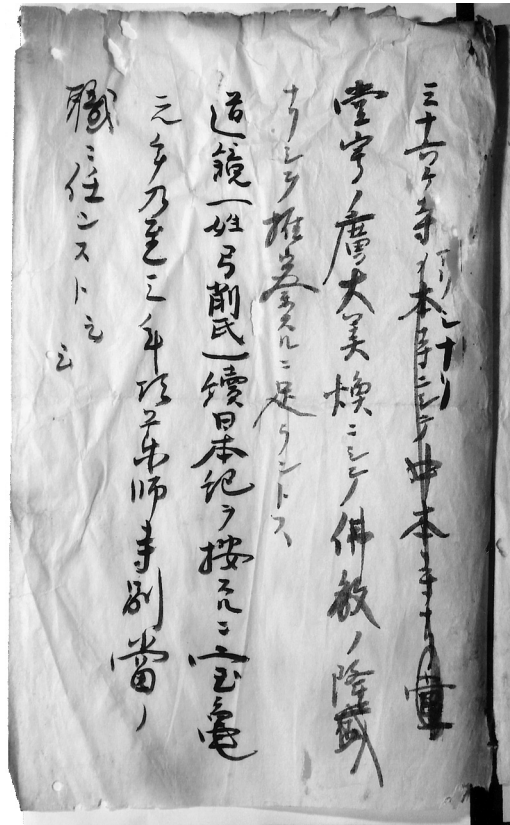 三十六ケ寺ノ本寺ニシテ中本寺
アリシナリ
堂宇ノ廣大美煥ニシテ佛教ノ隆盛
ナリシヲ推察スルニ足ラントス
道鏡(姓弓削氏)續日本紀ヲ按スルニ宝亀
元年乃至三年頃薬師寺別當ノ
職ニ任シストニ云